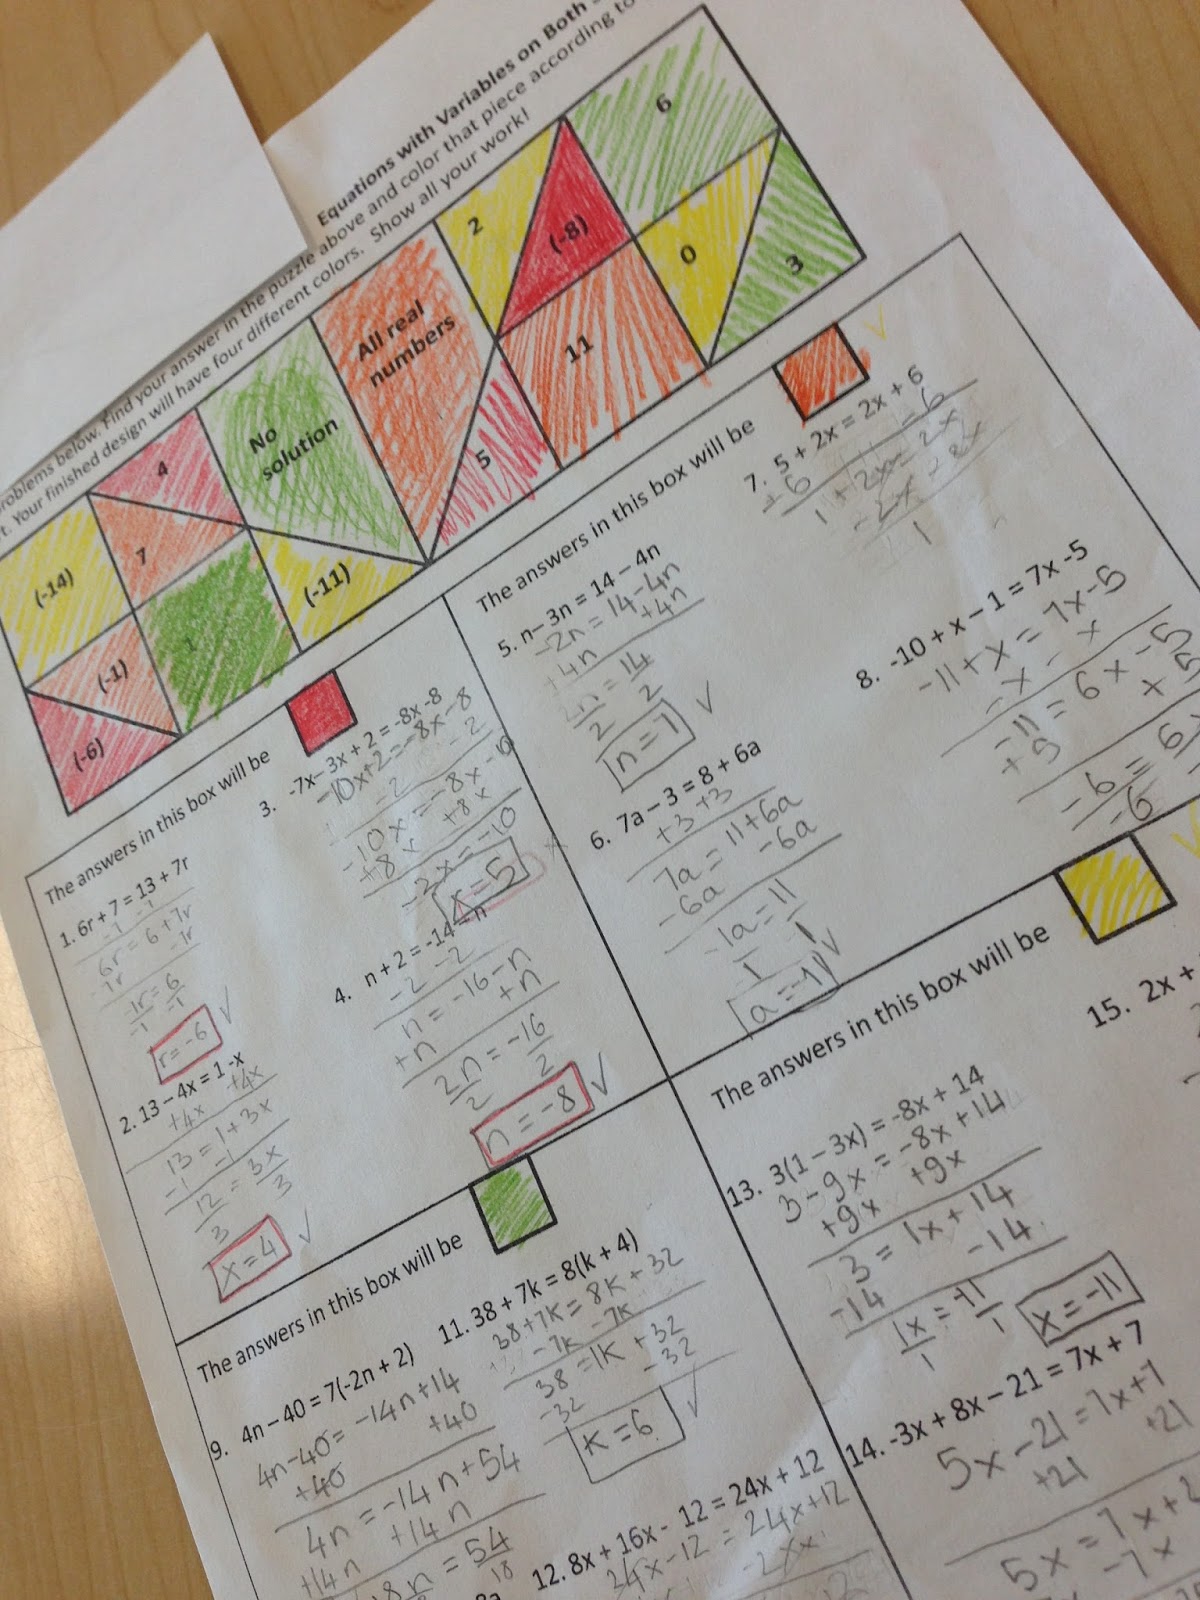 Equations with Variables on Both
problems below. Find your answer in the puzzle above and color that piece according to
t. Your finished design will have four different colors. Show all your work!
6
2
(-8)
0
3
All real
numbers
11
No
solution
5
4
7
(-11)
(-14)
1
(-1)
(-6)
The answers in this box will be
1. 6r + 7 = 13 + 7r
-7 -7
6r = 6 + 7r
-7r -7r
-1r = 6
-1 -1
r = -6
2. 13 – 4x = 1 -x
+4x +4x
13 = 1 + 3x
-1 -1
12 = 3x
3 3
x = 4
3. -7x – 3x + 2 = -8x -8
-10x + 2 = -8x - 8
-2 -2
+8x +8x
-2x = -10
x = 5
4. n + 2 = -14 – n
-2 -2
n = -16 - n
+n +n
2n = -16
2 2
n = -8
The answers in this box will be
5. n – 3n = 14 – 4n
-2n = 14 - 4n
+4n +4n
2n = 14
2 2
n = 7
6. 7a – 3 = 8 + 6a
+3 +3
7a = 11 + 6a
-6a -6a
1a = 11
7. 5 + 2x = 2x + 6
8. -10 + x – 1 = 7x -5
-11 + x = 7x - 5
-x -x
-11 = 6x - 5
+5 +5
-6 = 6
The answers in this box will be
9. 4n – 40 = 7(-2n + 2)
4n - 40 = -14n + 14
+40 +40
4n = -14n + 54
+14n +14n
18n = 54
18
11. 38 + 7k = 8(k + 4)
38 + 7k = 8k + 32
-7k -7k
38 = 1k + 32
-32 -32
k = 6
12. 8x + 16x - 12 = 24x + 12
24x - 12 = 24x + 12
The answers in this box will be
13. 3(1 – 3x) = -8x + 14
3 - 9x = -8x + 14
+9x +9x
3 = 1x + 14
-14 -14
x = -11
14. -3x + 8x – 21 = 7x + 7
5x - 21 = 7x + 7
+21 +21
5x = 7x + 2
-7x
15. 2x +